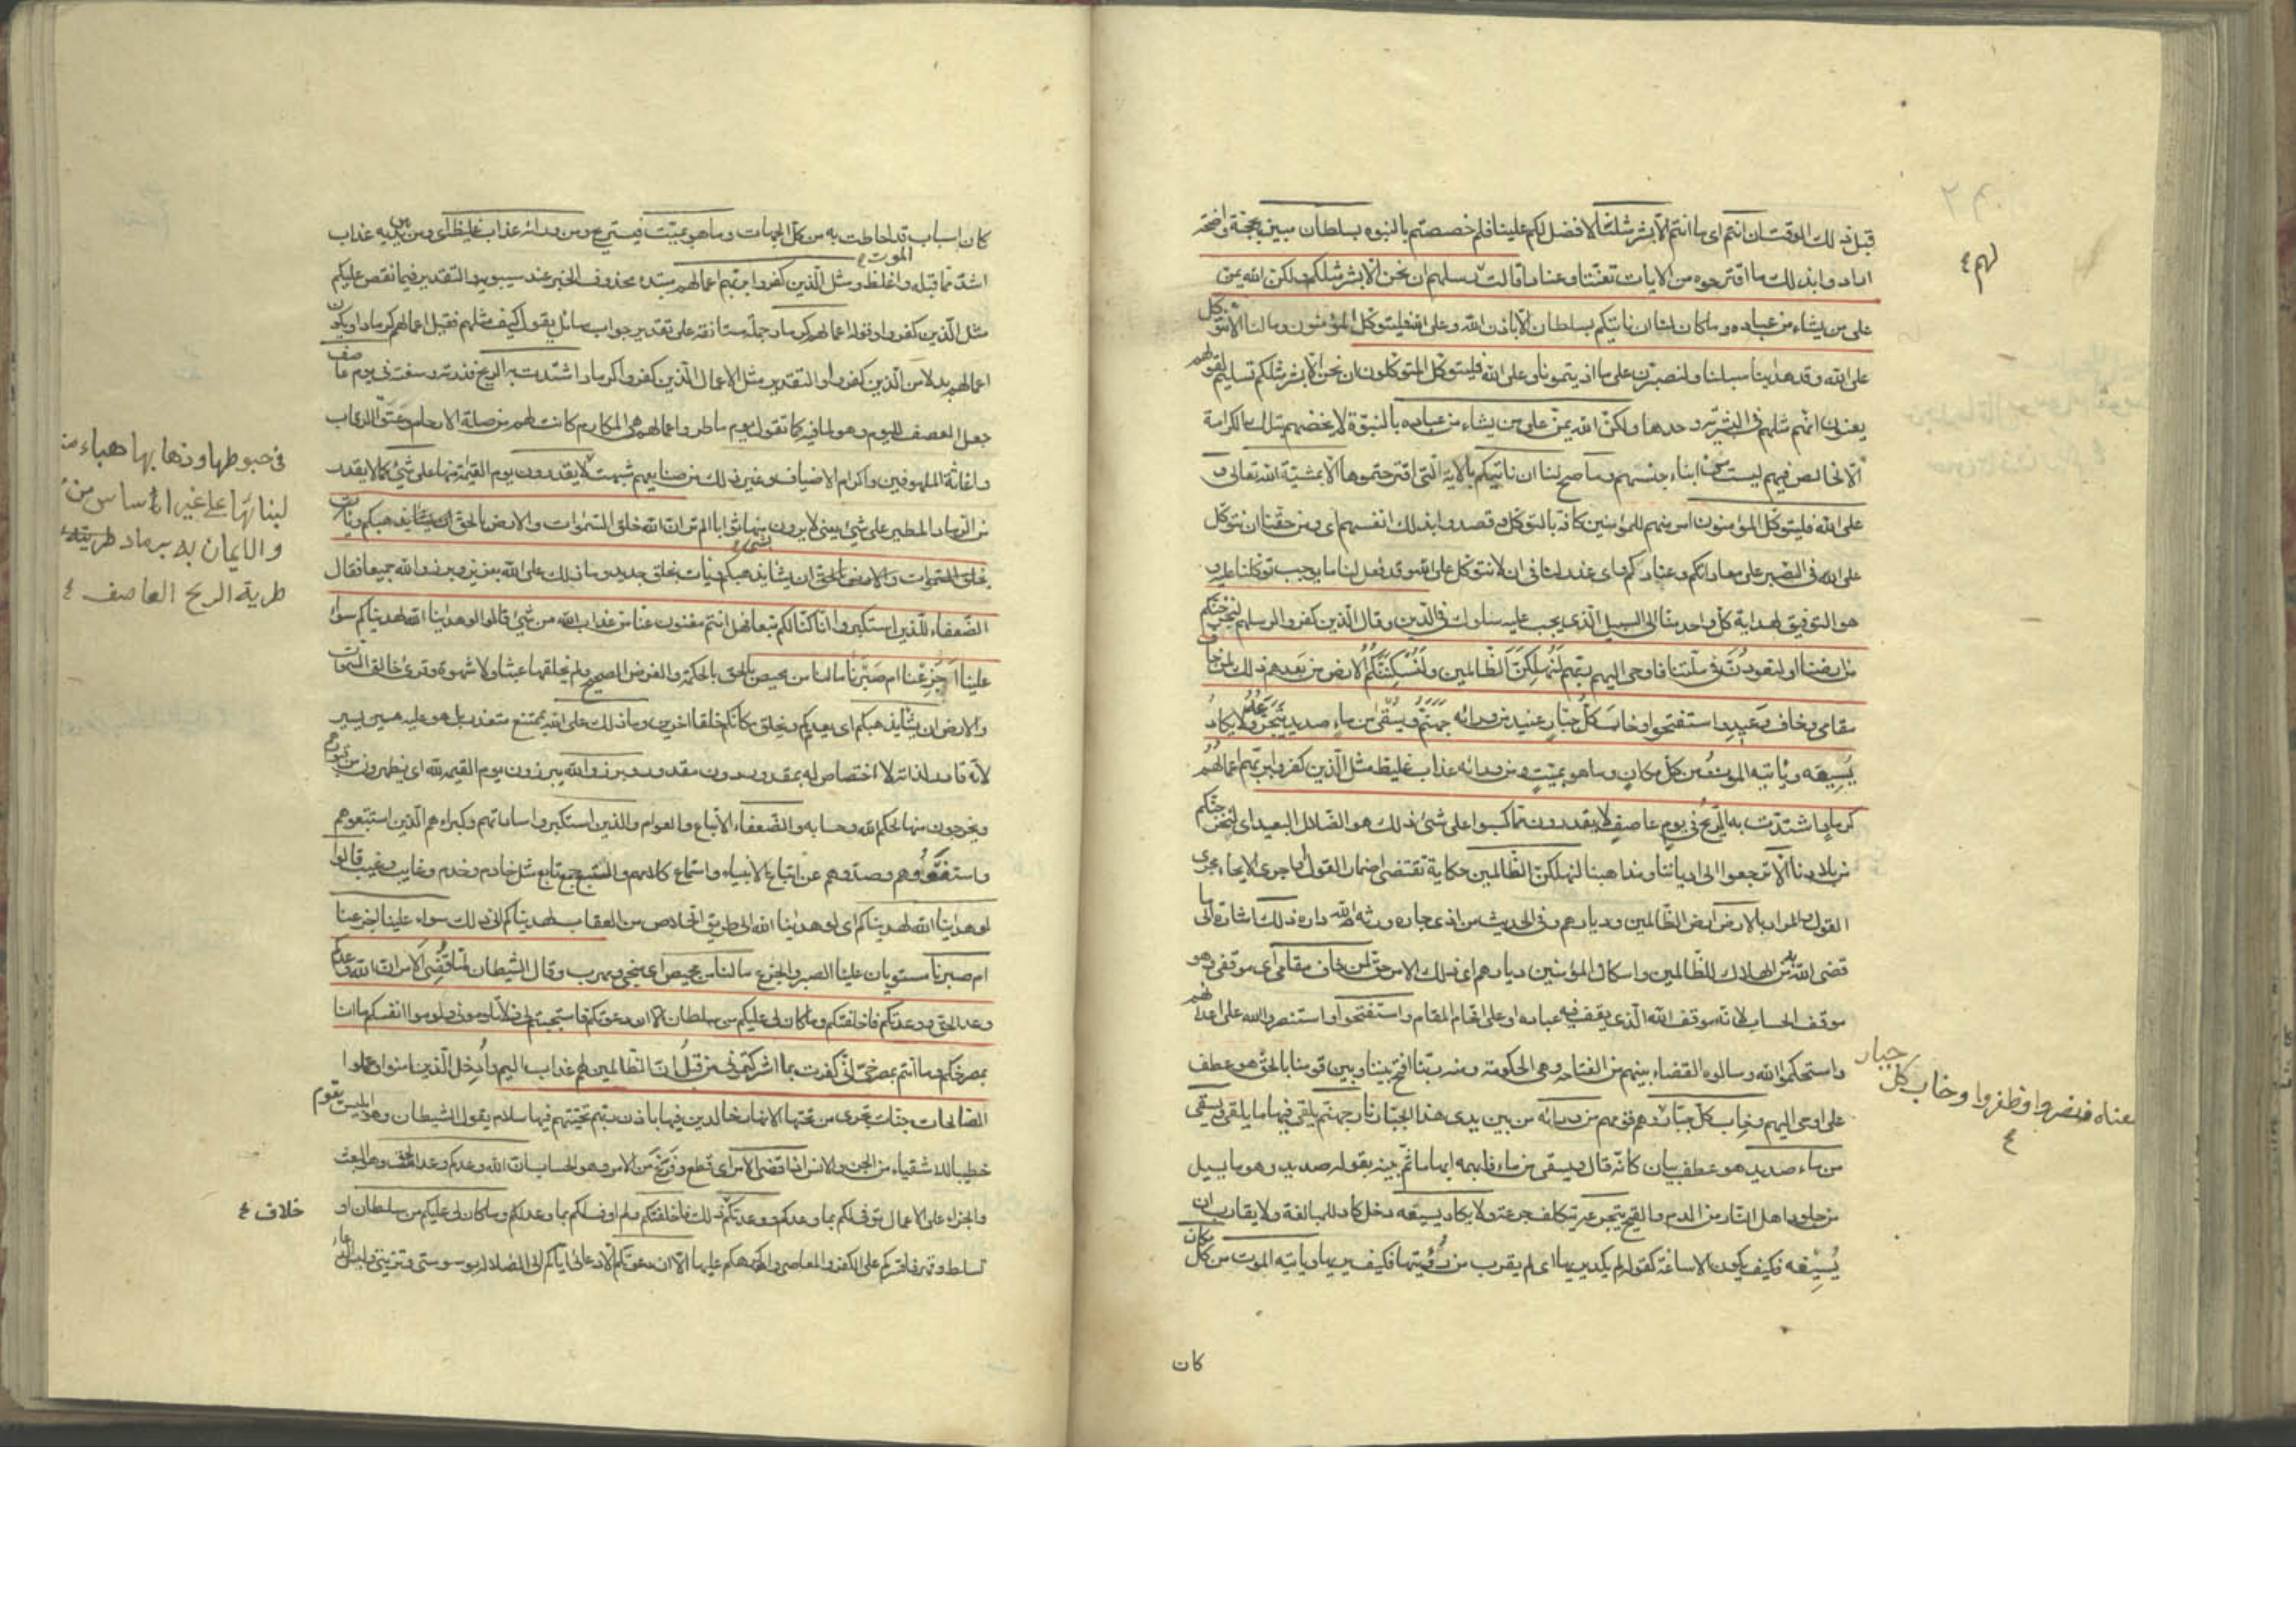 قبل ذلك الوقت ان انتم اى ما انتم الا بشر مثلنا لا فضل لكم علينا فلم خصصتم بالنبوه بسلطان مبين بحجة واضحة
ارادوا بذلك ما اقترحوه من الايات تعنتا وعنادا قالت رسلهم ان نحن الا بشر مثلكم ولكن الله يمن
لهم ع
على من يشاء من عباده وما كان لنا ان ناتيكم بسلطان الا باذن الله وعلى الله فليتوكل المؤمنون وما لنا الا نتوكل
على الله وقد هدينا سبلنا ولنصبرن على ما اذيتمونا وعلى الله فليتوكل المتوكلون ان نحن الا بشر مثلكم تسليم لقولهم
يعنون انهم مثلهم فى البشرية وحدها ولكن الله يمن على من يشاء من عباده بالنبوة لا يخصهم بتلك الكرامة
الا لخالص فيهم ليست فى ابناء جنسهم وما صح لنا ان ناتيكم بالاية التى اقترحتموها الا بمشية الله تعالى و
على الله فليتوكل المؤمنون امر منهم للمؤمنين كافة بالتوكل وقصدوا بذلك انفسهم اى ومن حقنا ان نتوكل
على الله فى الصبر على معاداتكم وعنادكم واى عذر لنا فى ان لا نتوكل على الله وقد فعل لنا ما يوجب توكلنا عليه و
هو التوفيق لهداية كل واحد منا الى السبيل الذى يجب عليه سلوكه فى الدين وقال الذين كفروا لرسلهم لنخرجنكم
من ارضنا او لتعودن فى ملتنا فاوحى اليهم ربهم لنهلكن الظالمين ولنسكننكم الارض من بعدهم ذلك لمن خاف
مقامى وخاف وعيد واستفتحوا وخاب كل جبار عنيد من ورائه جهنم ويسقى من ماء صديد يتجرعه ولا يكاد
يسيغه وياتيه الموت من كل مكان وما هو بميت ومن ورائه عذاب غليظ مثل الذين كفروا بربهم اعمالهم
كرماد اشتدت به الريح فى يوم عاصف لا يقدرون مما كسبوا على شئ ذلك هو الضلال البعيد اى لنخرجنكم
من بلادنا الا ترجعوا الى ادياننا ومذاهبنا لنهلكن الظالمين حكاية تقتضى اضمار القول او اجرى الايحاء مجرى
القول والمراد بالارض ارض الظالمين وديارهم وفى الحديث من اذى جاره ورثه الله داره ذلك اشارة الى ما
قضى الله به من اهلاك الظالمين واسكان المؤمنين ديارهم اى ذلك الامر حق لمن خاف مقامى اى موقفى وهو
موقف الحساب لانه موقف الله الذى يقف فيه عباده او على اقحام المقام واستفتحوا واستنصروا الله على اعدائهم
واستحكموا الله وسالوه القضاء بينهم من الفتاحه وهى الحكومة ومنه ربنا افتح بيننا وبين قومنا بالحق هو عطف
معناه فنصروا وظفروا وخاب كل جبار ع
على اوحى اليهم وخاب كل جبار وهم قومهم من ورائه من بين يدى هذا الجبار نار جهنم يلقى فيها ما يلقى ويسقى
من ماء صديد هو عطف بيان كانه قال ويسقى من ماء فابهمه ابهاما ثم بينه بقوله صديد وهو ما يسيل
من جلود اهل النار من الدم والقيح يتجرعه يتكلف جرعه ولا يكاد يسيغه دخل كاد للمبالغة ولا يقارب ان
يسيغه فكيف يكون الاساغة كقوله لم يكد يريها اى لم يقرب من رؤيتها فكيف يريها وياتيه الموت من كل مكان
كان
كان اسباب قد احاطت به من كل الجهات وما هو بميت فيستريح ومن ورائه عذاب غليظ اى ومن بين يديه عذاب
الموت ع
اشد مما قبله واغلظ ومثل الذين كفروا بربهم اعمالهم مبتدء محذوف الخبر عند سيبويه والتقدير فيما نقص عليكم
مثل الذين كفروا وقوله اعمالهم كرماد جملة مستانفة على تقدير جواب سائل يقول كيف مثلهم فقيل اعمالهم كرماد او يكون
اعمالهم بدلا من الذين كفروا والتقدير مثل الاعمال الذين كفروا كرماد اشتدت به الريح فذرته وسفته فى يوم عاصف
جعل العصف لليوم وهو لما فيه كما تقول يوم ماطر واعمالهم هى المكارم كانت لهم من صلة الارحام وعتق الرقاب
واغاثة الملهوفين واكرام الاضياف وغير ذلك من صنايعهم شبهت لا يقدرون يوم القيمة منها على شئ كما لا يقدر
فى حبوطها وذهابها هباء من
لبنائها على غير اساس من
والايمان به برماد طيرته
طرية الريح العاصف ع
من الرماد المطير على شئ يعنى لا يرون منها ثوابا الم تر ان الله خلق السموات والارض بالحق ان يشا يذهبكم ويات
بخلق السموات والارض بالحق ان يشا يذهبكم ويات بخلق جديد وما ذلك على الله بعزيز وبرزوا لله جميعا فقال
الضعفاء للذين استكبروا انا كنا لكم تبعا فهل انتم مغنون عنا من عذاب الله من شئ قالوا لو هدينا الله لهديناكم سواء
علينا اجزعنا ام صبرنا ما لنا من محيص بالحق بالحكمة والغرض الصحيح ولم يخلقها عبثا ولا شهوة وقرئ خالق السموات
والارض ان يشا يذهبكم اى يعدمكم ويخلق مكانكم خلقا اخرين وما ذلك على الله بممتنع متعذر بل هو عليه هين يسير
لانه قادر لذاته لا اختصاص له بمقدور دون مقدور وبرزوا لله يبرزون يوم القيمه لله اى يظهرون من قبورهم
ويخرجون منها لحكم الله وحسابه والضعفاء الاتباع والعوام والذين استكبروا ساداتهم وكبراءهم الذين استتبعوهم
واستغووهم وصدوهم عن اتباع الانبياء واستماع كلامهم والتبع جمع تابع مثل خادم وخدم وغايب وغيب قالوا
لو هدانا الله لهديناكم اى لو هدينا الله الى طريق الخلاص من العقاب لهديناكم الى ذلك سواء علينا اجزعنا
ام صبرنا مستويان علينا الصبر والجزع ما لنا من محيص اى منجى ومهرب وقال الشيطان لما قضى الامر ان الله وعدكم
وعد الحق ووعدتكم فاخلفتكم وما كان لى عليكم من سلطان الا ان دعوتكم فاستجبتم لى فلا تلومونى ولوموا انفسكم ما انا
بمصرخكم وما انتم بمصرخى انى كفرت بما اشركتمونى من قبل ان الظالمين لهم عذاب اليم وادخل الذين امنوا وعملوا
الصالحات جنات تجرى من تحتها الانهار خالدين فيها باذن ربهم تحيتهم فيها سلام يقول الشيطان وهو ابليس يقوم
خطيبا للاشقياء من الجن والانس لما قضى الامر اى قطع وفرغ من الامر وهو الحساب ان الله وعدكم وعد الحق وهو البعث
والجزاء على الاعمال فوفى لكم بما وعدكم ووعدتكم ذلك فاخلفتكم ولم اوف لكم بما وعدتكم وما كان لى عليكم من سلطان او
خلاف ع
تسلط وقهر فاقسركم على الكفر والمعاصى واكرهكم عليها الا ان دعوتكم الا دعائى اياكم الى الضلالة بوسوستى وتزيينى